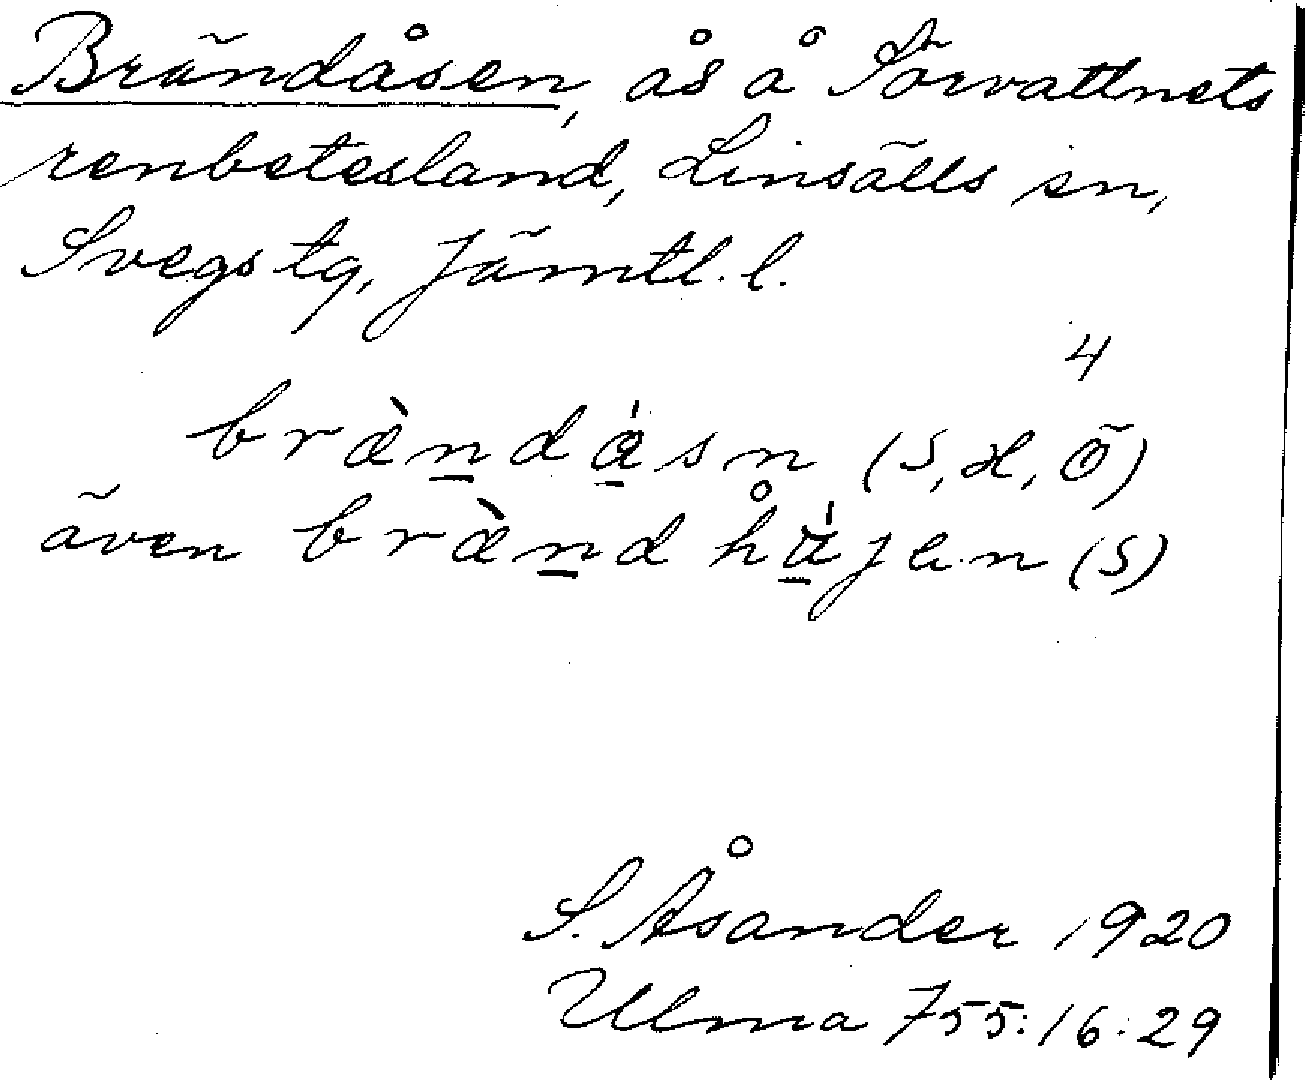 Brändåsen, ås å Sörvattnets
renbetesland, Linsälls sn,
Svegs tg, Jämtl. l.
4
bræ̀ṉdǻ̱sn (S, H, Ö)
även bræ̀ṉdhǻ̱jen (S)
S. Åsander 1920
Ulma 755:16:29